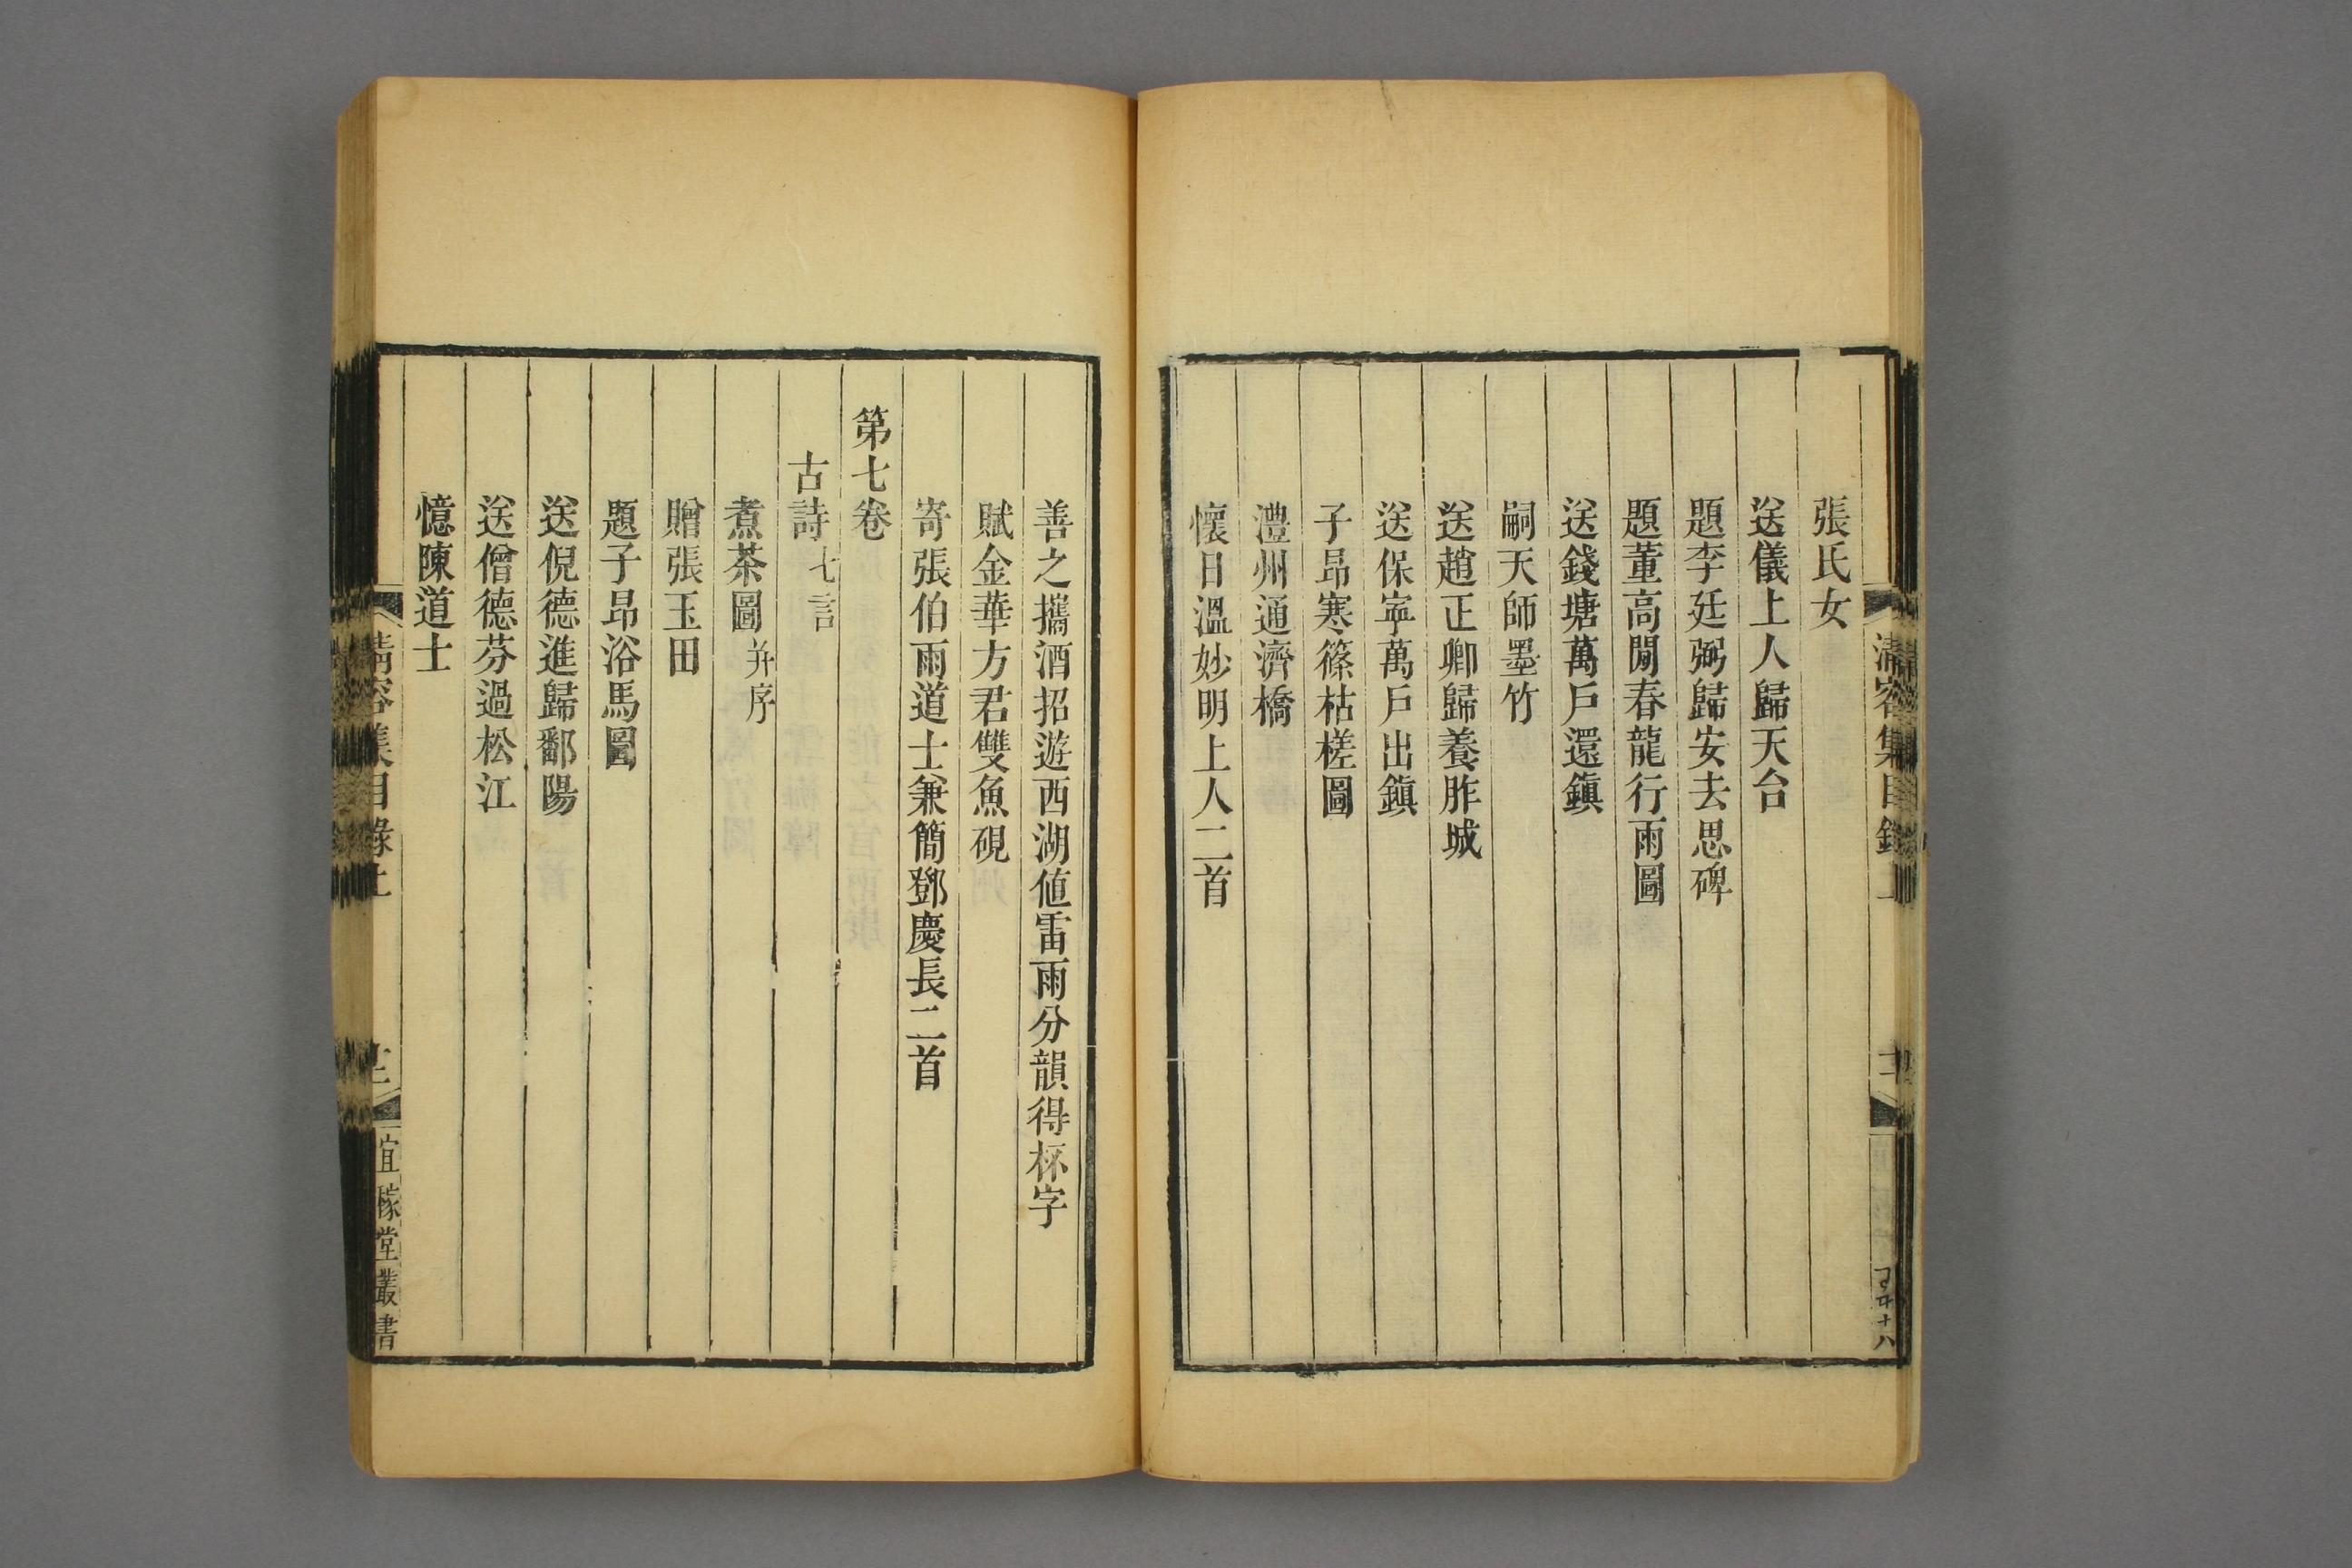 張氏女
送儀上人歸天台
題李廷弼歸安去思碑
題董高閒春龍行雨圖
送錢塘萬戶還鎮
嗣天師墨竹
送趙正卿歸養胙城
送保寧萬戶出鎮
子昂寒篠枯槎圖
澧州通濟橋
懷日溫妙明上人二首
善之攜酒招遊西湖値雷雨分韻得杯字
賦金華方君雙魚硯
寄張伯雨道士兼簡鄧慶長二首
第七卷
古詩七言
煮茶圖并序
贈張玉田
題子昂浴馬圖
送倪德進歸鄱陽
送僧德芬過松江
憶陳道士
清容集目錄上
宜稼堂叢書